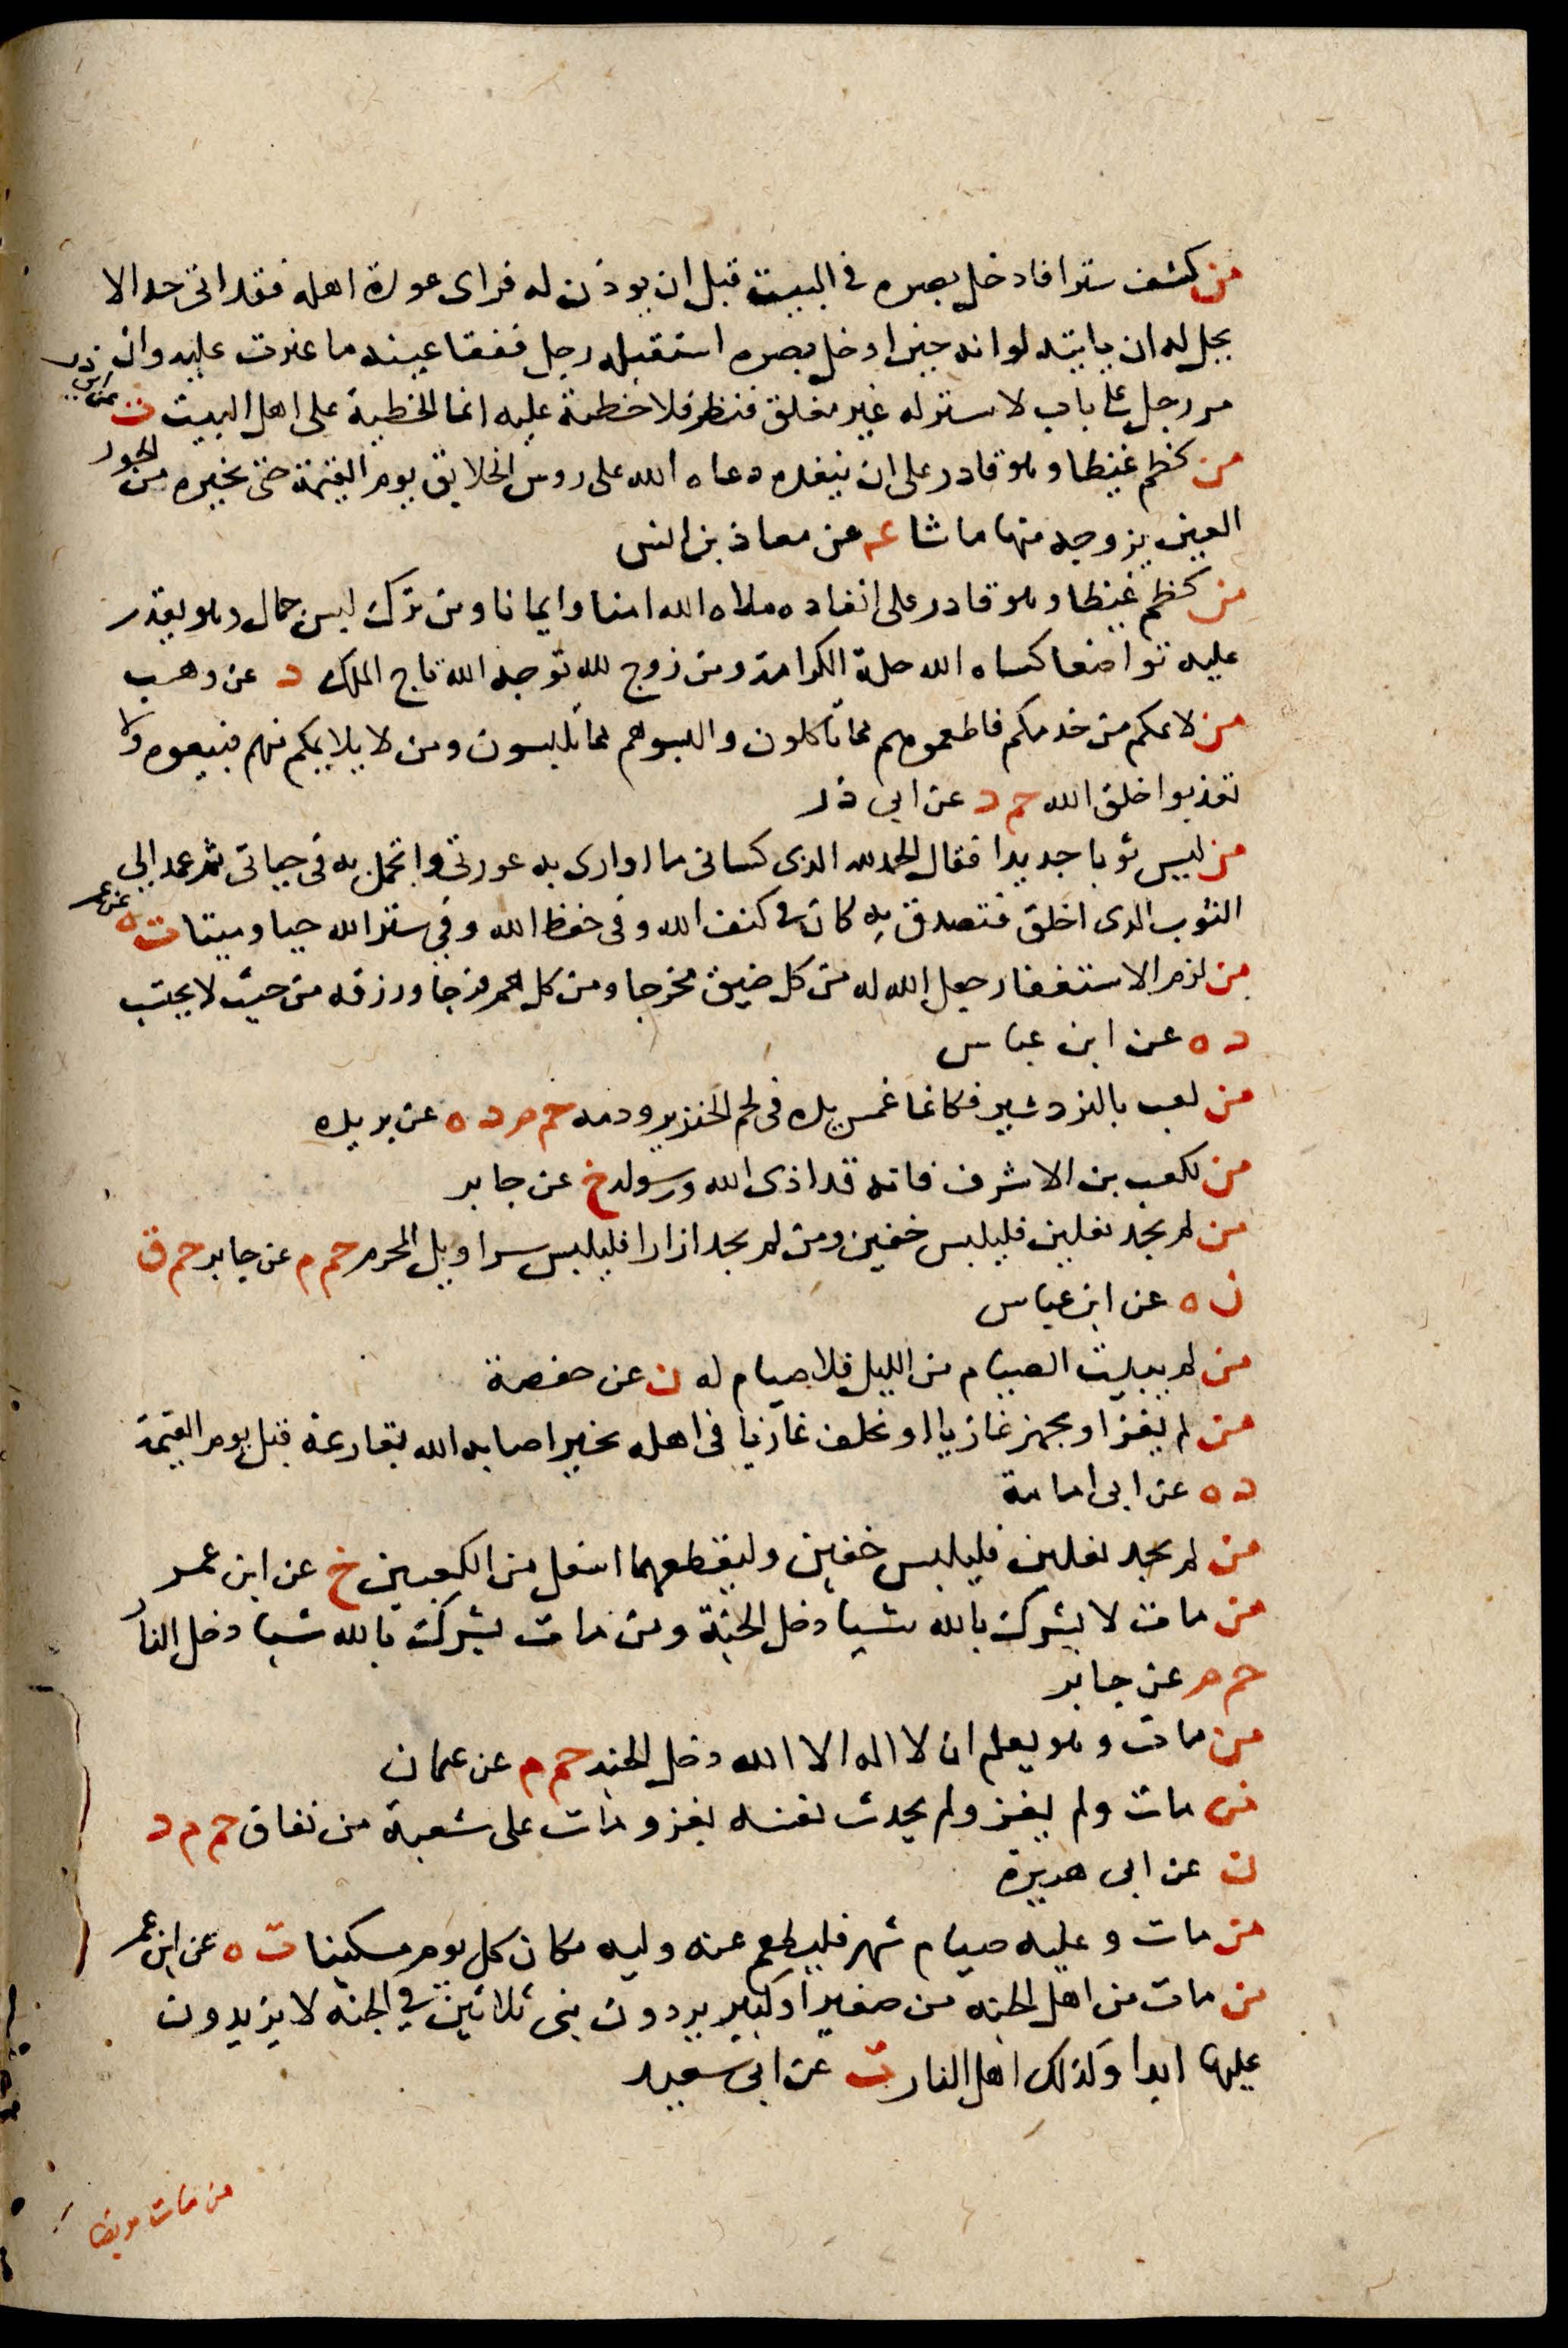 من كشف سترا فادخل بصره في البيت قبل ان يوذن له فراى عورة اهله فقد اتى حدا لا
يحل له ان ياتيه لو انه حين ادخل بصره استقبله رجل ففقا عينه ما عيرت عليه وان
مر رجل على باب لا ستر له غير مغلق فنظر فلا خطئة عليه انما الخطية على اهل البيت ت عن ابي ذر
من كظم غيظا وهو قادر على ان ينفذه دعاه الله على روس الخلايق يوم القيمة حتى يخيره من الحور
العين يزوجه منها ما شا عه عن معاذ بن انس
من كظم غيظا وهو قادر على انفاده ملاه الله امنا وايمانا ومن ترك لبس جمال وهو يقدر
عليه تواضعا كساه الله حلة الكرامة ومن زوج لله توجه الله تاج الملك د عن وهب
من لايمكم من خدمكم فاطعموهم مما تاكلون والبسوهم مما تلبسون ومن لا يلايمكم منهم فبيعوه ولا
تعذبوا خلق الله حم د عن ابي ذر
من لبس ثوبا جديدا فقال الحمد لله الذي كساني ما اواري به عورتي واتجمل به في حياتي ثم عمد الى
الثوب الذي اخلق فتصدق به كان في كنف الله وفي حفظ الله وفي ستر الله حيا وميتا ت ه عن عمر
من لزم الاستغفار جعل الله له من كل ضيق مخرجا ومن كل هم فرجا ورزقه من حيث لا يحتسب
د ه عن ابن عباس
من لعب بالنردشير فكانما غمس يده في لحم الخنزير ودمه حم م د ه عن بريدة
من لكعب بن الاشرف فانه قد اذى الله ورسوله خ عن جابر
من لم يجد نعلين فليلبس خفين ومن لم يجد ازارا فليلبس سراويل المحرم حم م عن جابر حم ق
ن ه عن ابن عباس
من لم يبيت الصيام من الليل فلا صيام له ن عن حفصة
من لم يغز او يجهز غازيا او يخلف غازيا في اهله بخير اصابه الله بقارعة قبل يوم القيمة
د ه عن ابي امامة
من لم يجد نعلين فليلبس خفين وليقطعهما اسفل من الكعبين خ عن ابن عمر
من مات لا يشرك بالله شيا دخل الجنة ومن مات يشرك بالله شيا دخل النار
حم م عن جابر
من مات وهو يعلم ان لا اله الا الله دخل الجنه حم م عن عثمان
من مات ولم يغز ولم يحدث نفسه بغزو مات على شعبة من نفاق حم م د
ن عن ابي هريرة
من مات وعليه صيام شهر فليطعم عنه وليه مكان كل يوم مسكينا ت ه عن ابن عمر
من مات من اهل الجنه من صغير او كبير يردون بني ثلاثين في الجنه لا يزيدون
عليها ابدا وكذلك اهل النار ت عن ابي سعيد
من مات مريضا